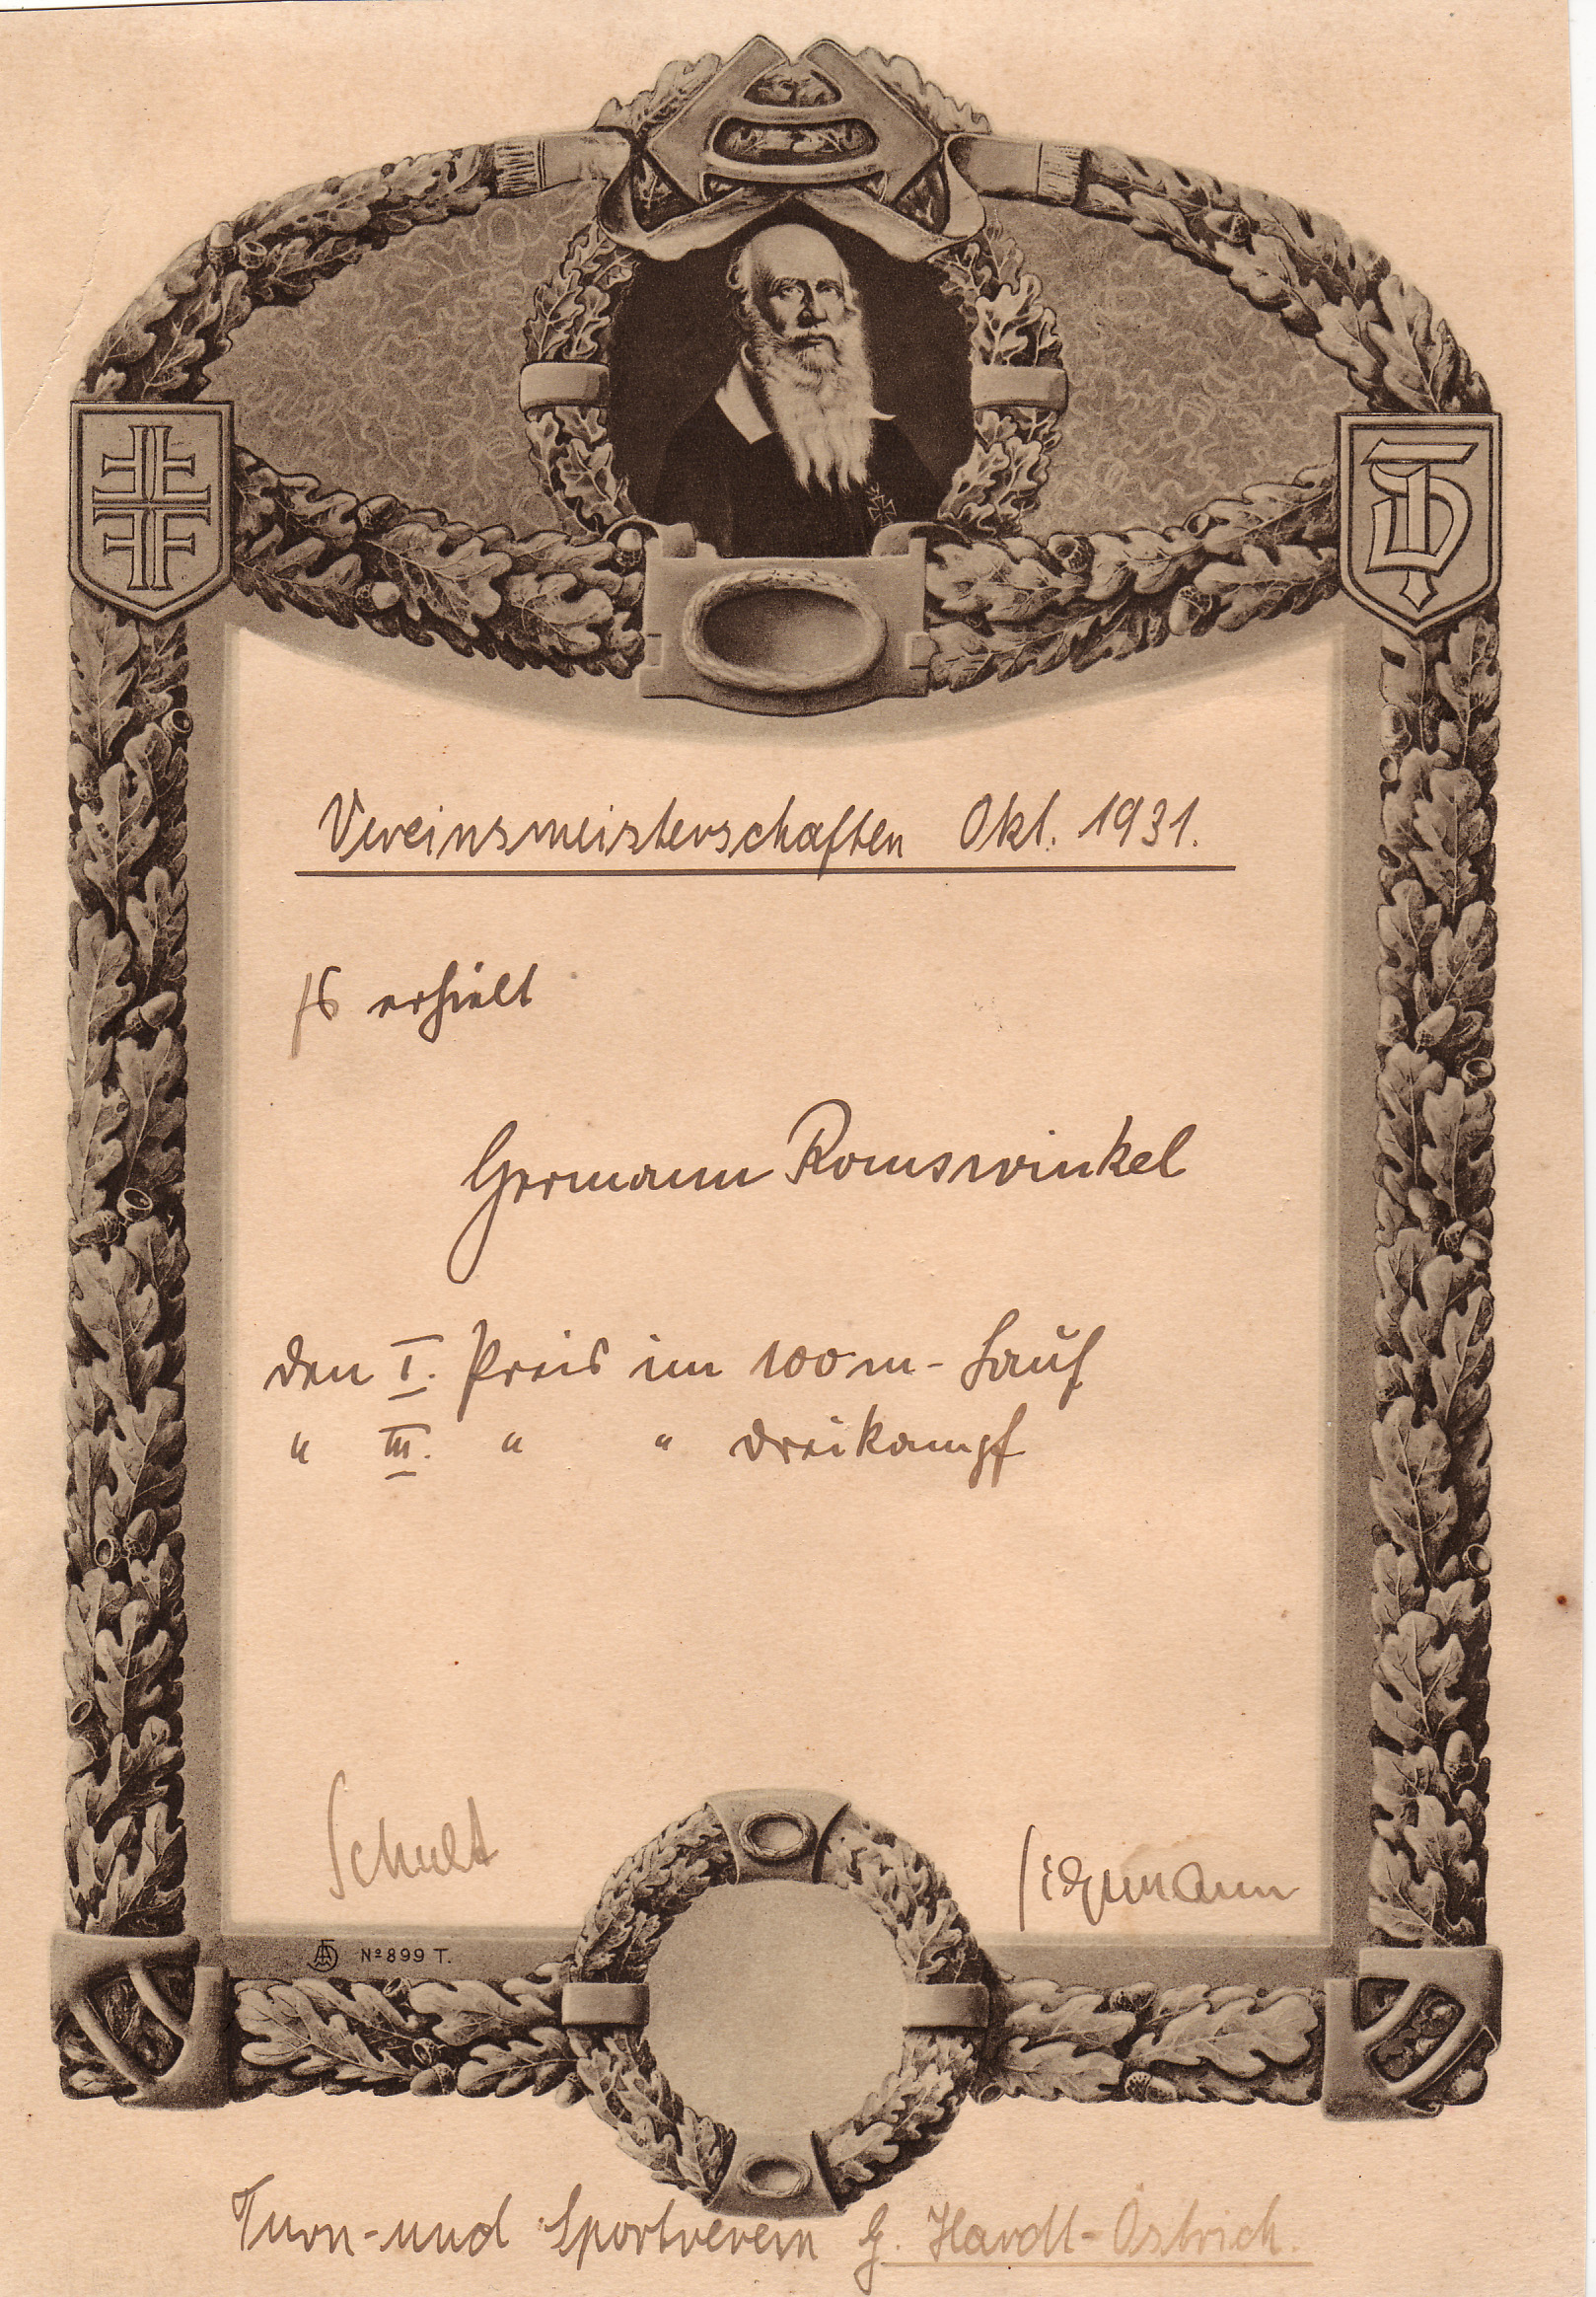 Vereinsmeisterschaften Okt. 1931.
Es erhielt
Hermann Romswinkel
den I. Preis im 100 m - Lauf
" III. " " Dreikampf
Schult
Nº 899 T.
Turn- und Sportverein Hardt-Östrich.